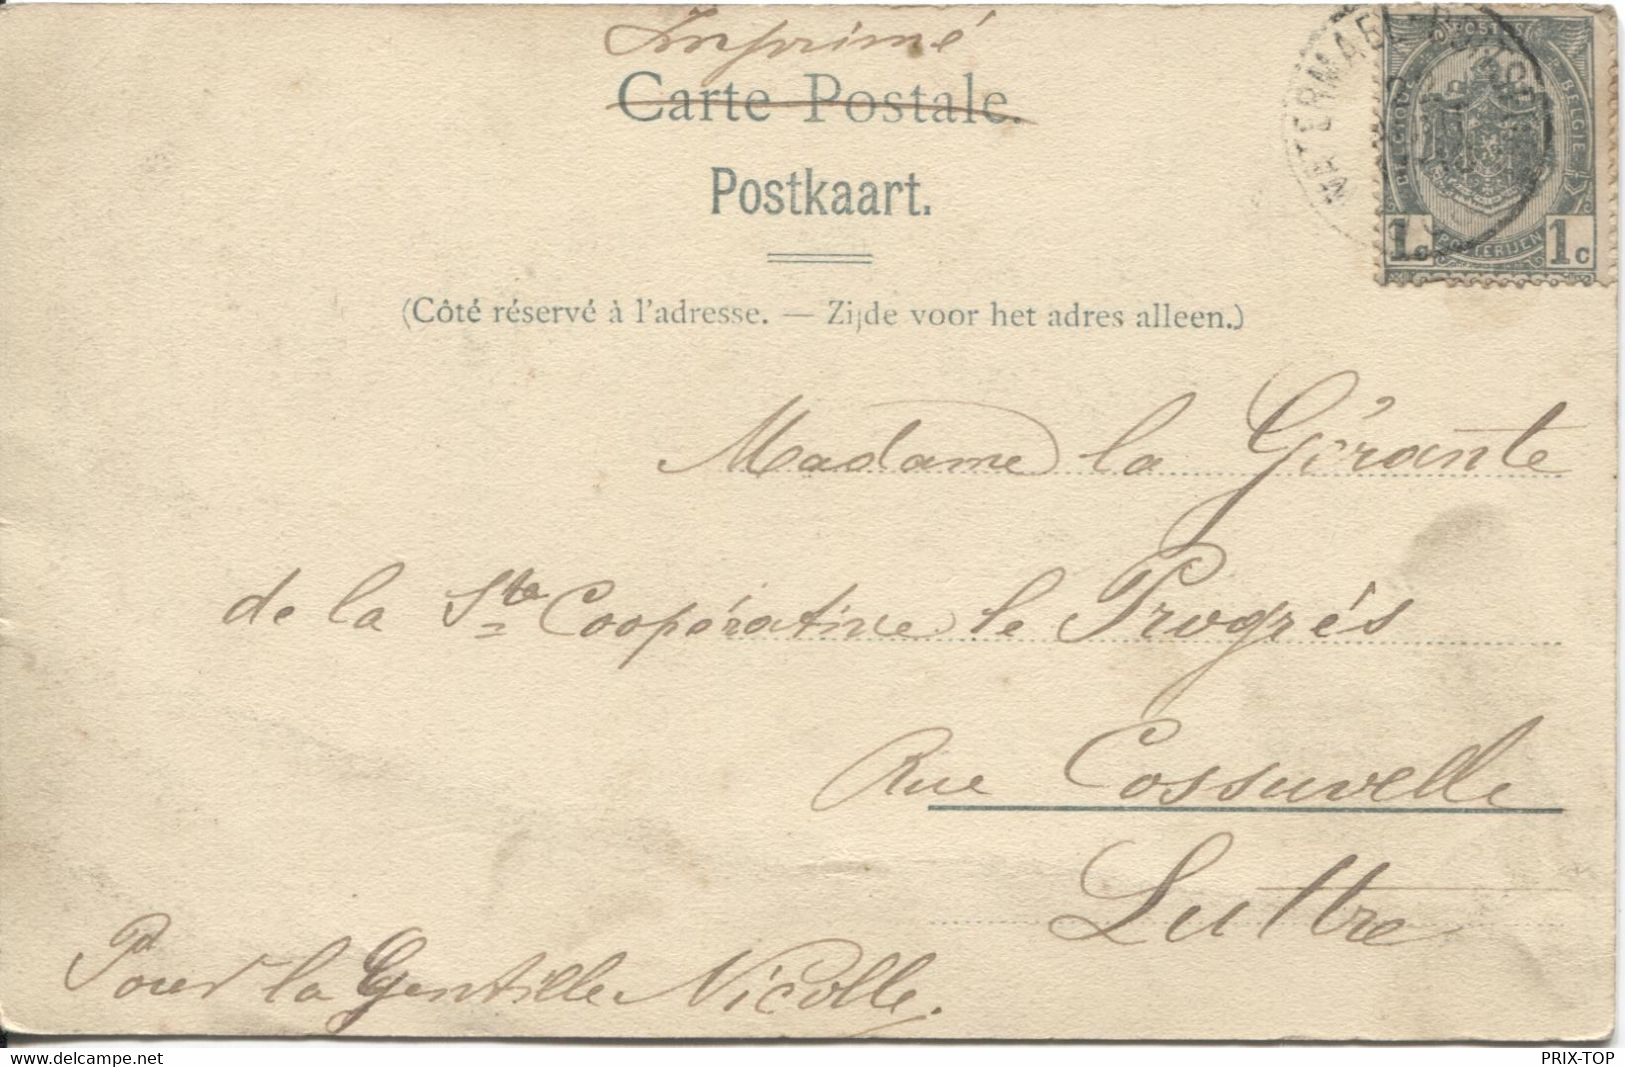 Imprimé
Carte Postale.
Postkaart.
(Côté réservé à l'adresse. — Zijde voor het adres alleen.)
POSTES
BELGIQUE
BELGIE
POSTERIJEN
1c 1c
WATERMAEL
Madame la Gérante
de la Sté Coopérative le Progrés
Rue Cossuvelle
Luttre
Pour la Gentille Nicolle.
www.delcampe.net
PRIX-TOP